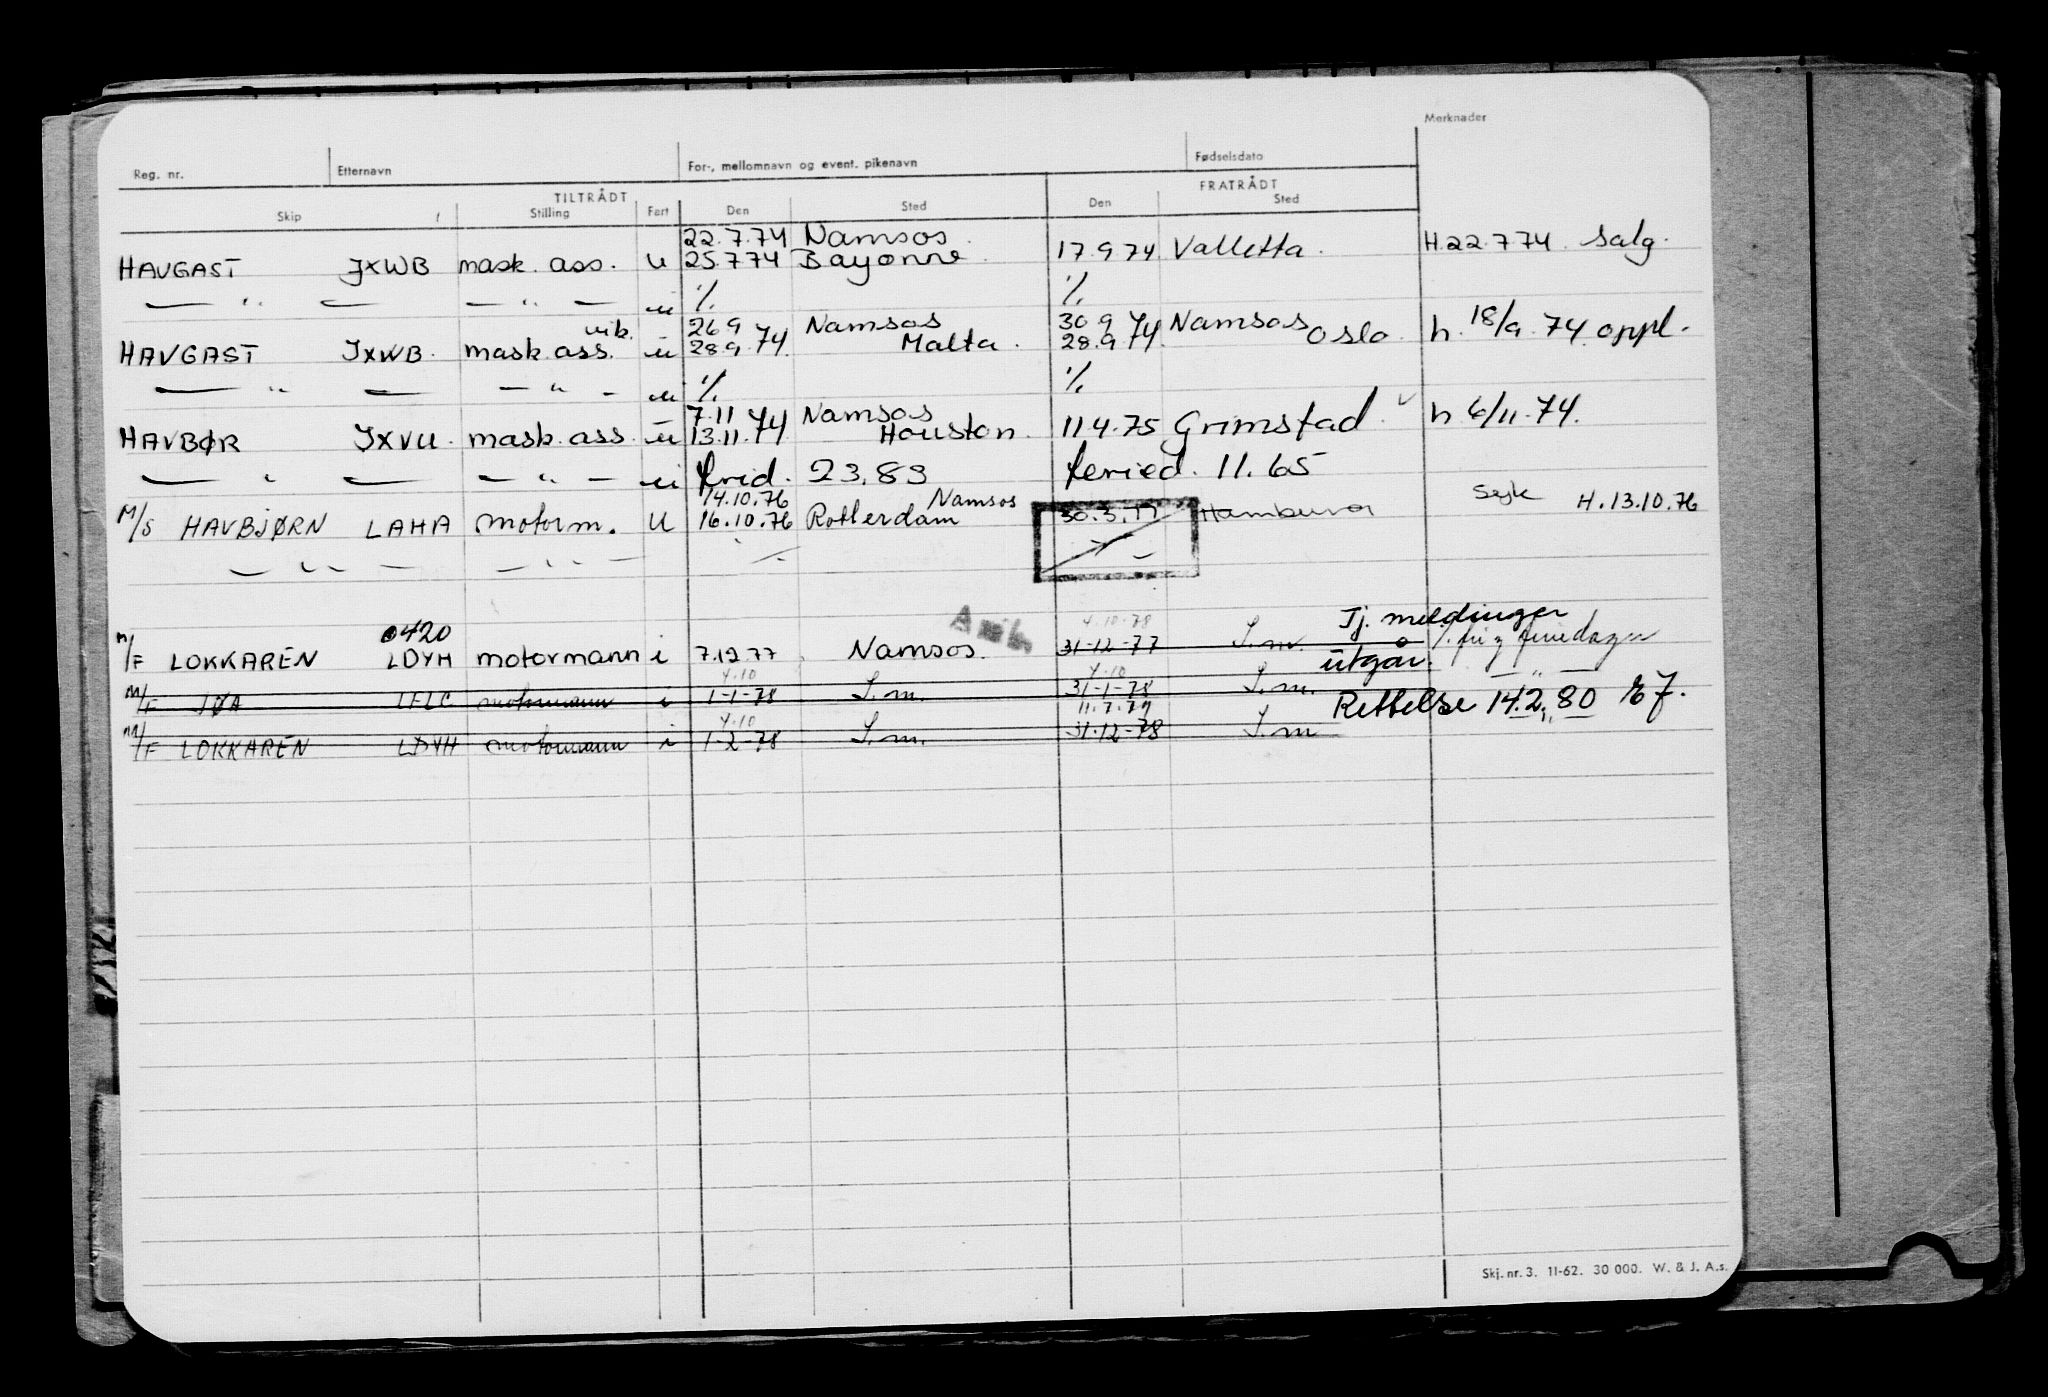 Merknader
Reg. nr. Etternavn For-, mellomnavn og event. pikenavn Fødselsdato
TILTRÅDT FRATRÅDT
Skip Stilling Fart Den Sted Den Sted
22.7.74 Namsos
HAVGAST JXWB mask. ass. u 25.7.74 Bayonne 17.9.74 Valletta H.22.7.74 salg.
— " — — " — u %. %.
vik. 26.9 Namsos 30.9 74 Namsos
HAVGAST JXWB mask. ass. u 28.9.74 Malta 28.9.74 Oslo h. 18/9.74 oppl.
— " — — " — u %. %.
7.11.74 Namsos
HAVBØR JXVU mask. ass. u 13.11.74 Houston 11.4.75 Grimstad h 6/11.74.
— " — — " — u 23.83 11.65
14.10.76 Namsos
M/S HAVBJØRN LAHA motorm. u 16.10.76 Rotterdam 30.3.77 Hamburg Syk H.13.10.76
— " — — " —
0420 4.10.78 Tj. meldinger
M/F LOKKAREN LDYH motormann i 7.12.77 Namsos. 31-12-77 S.m. utgår.
4.10 4.10
M/F JØA LFLC motormann i 1-1-78 S.m. 31-1-78 S.m. — " —
4.10 11.7.79 Rettelse 14.2.80
M/F LOKKAREN LDYH motormann i 1-2-78 S.m. 31-12-78 S.m
Skj. nr. 3. 11-62. 30 000. W. & J. A.s.